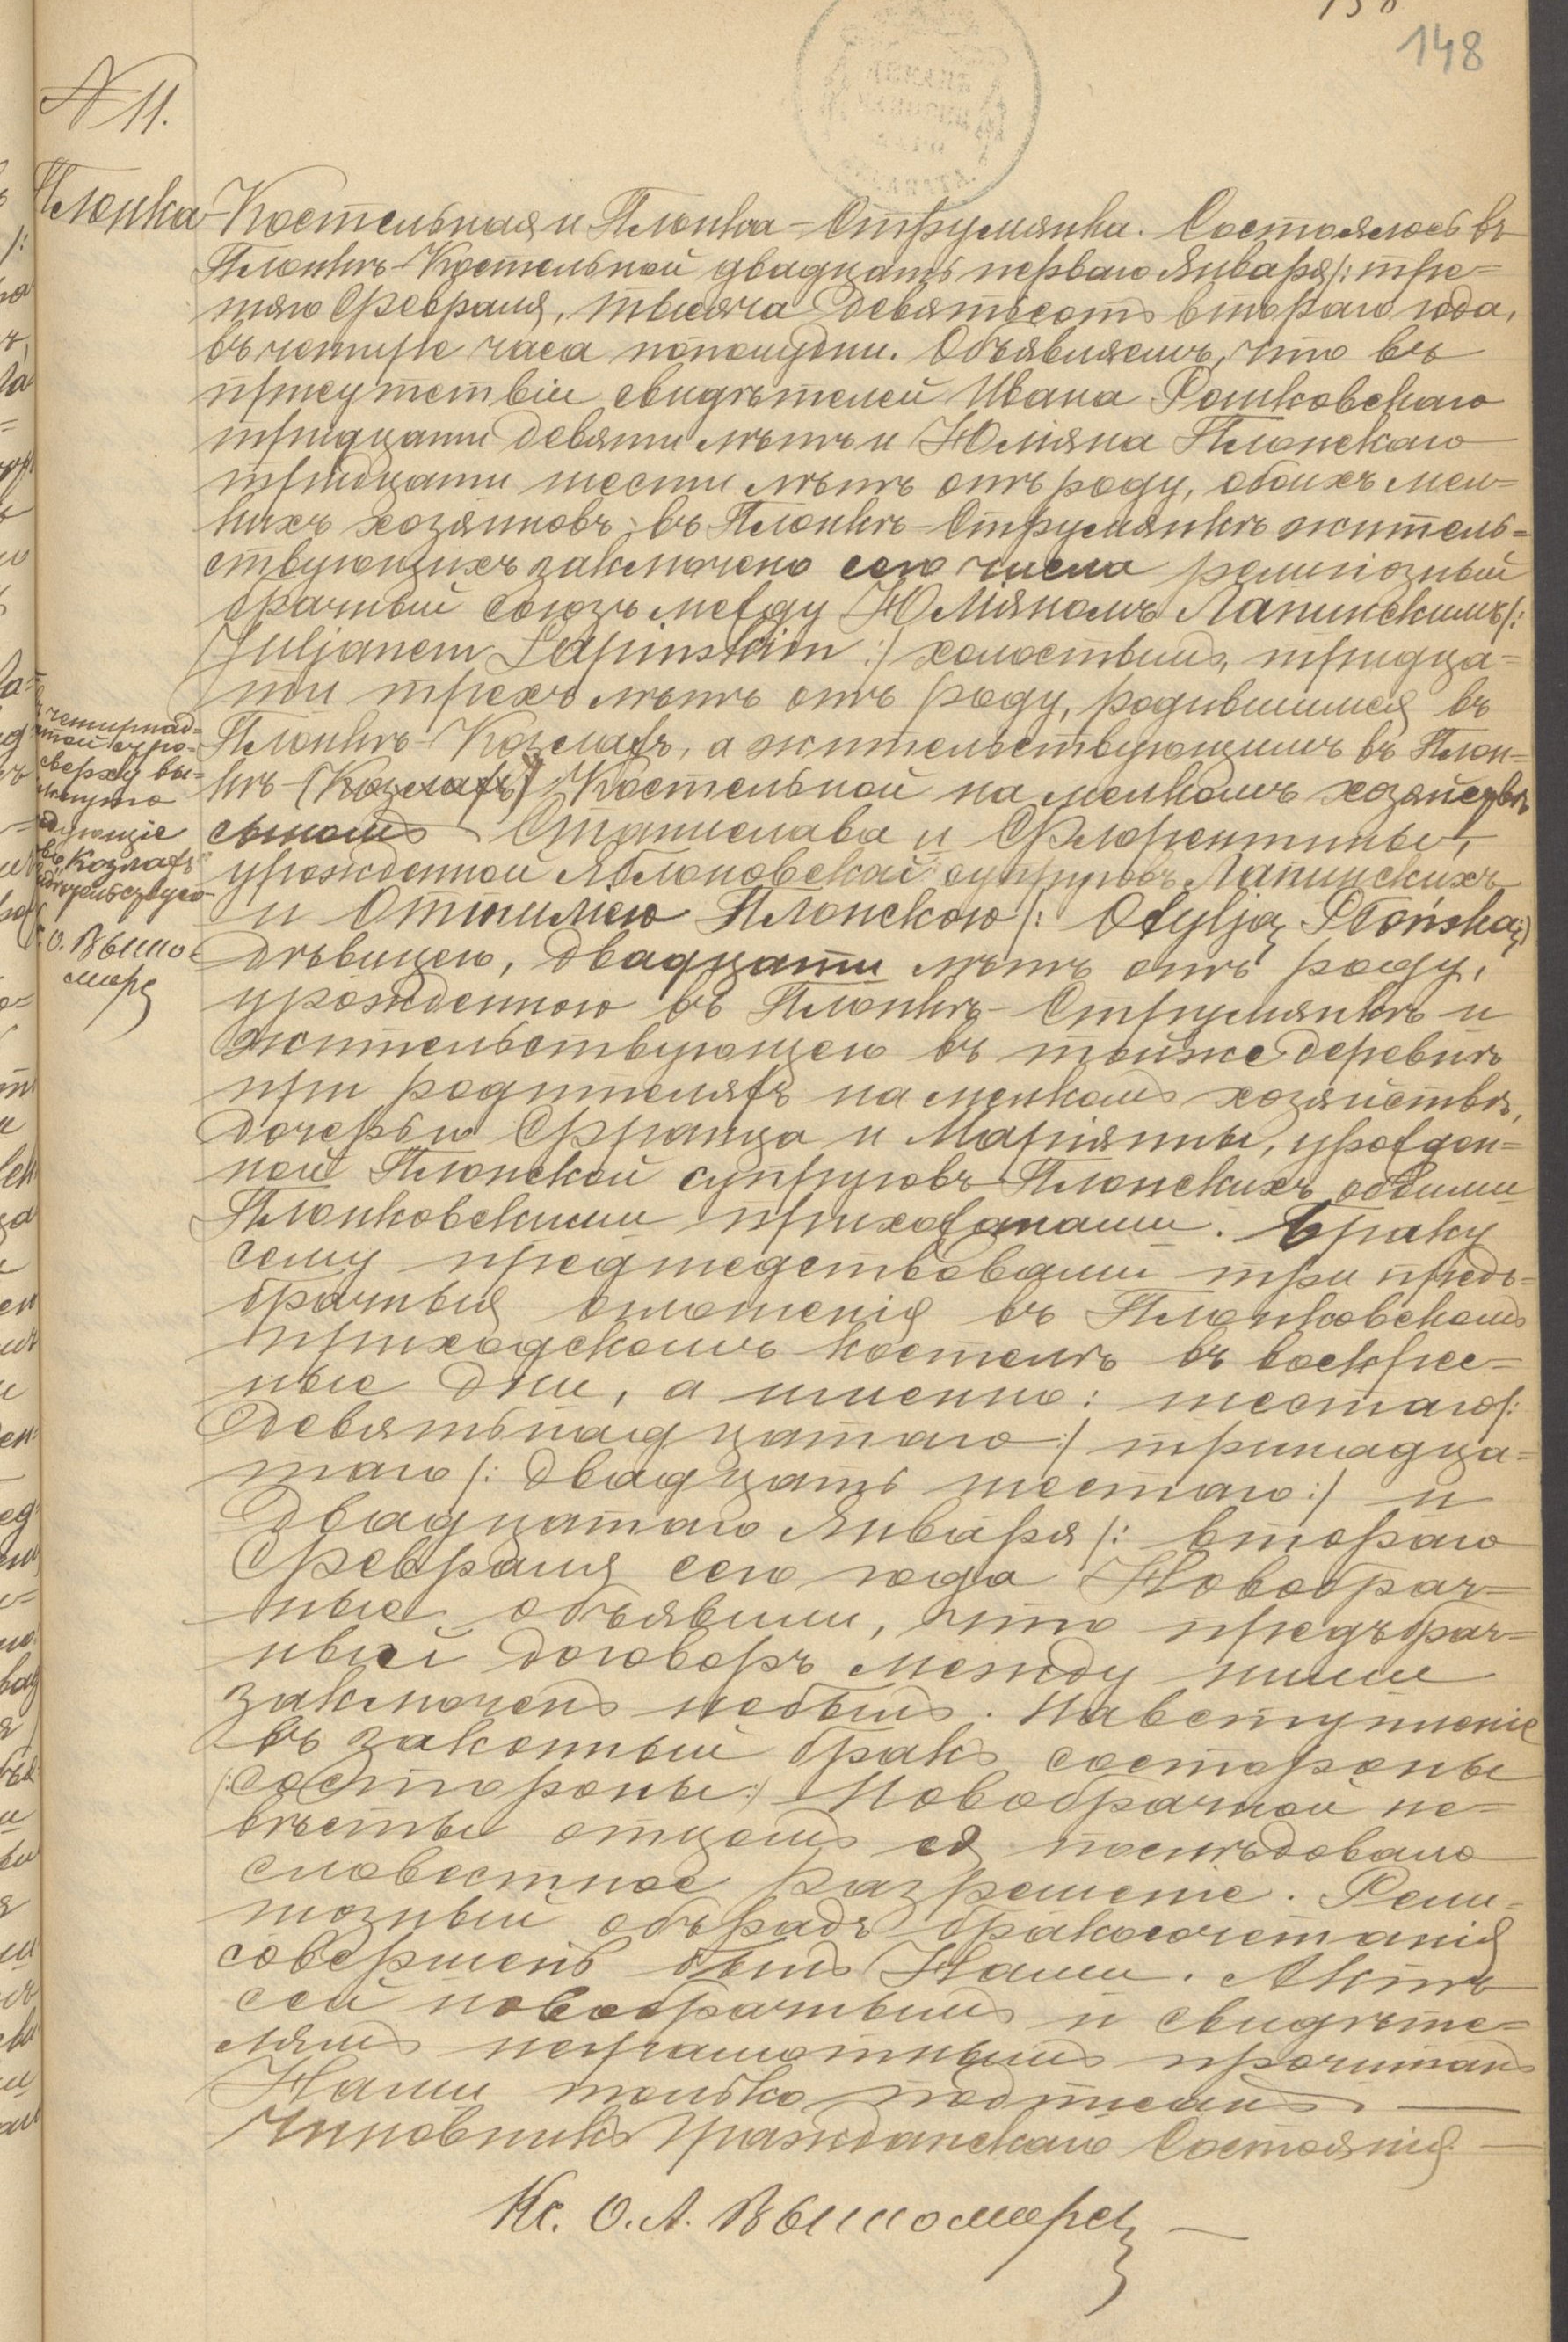 148
N 11.
Плонка-Костельная и Плонка-Струмянка. Состоялось въ
Плонкѣ-Костельной двадцать перваго Января /: тре=
тяго Февраля, тысяча девятьсотъ втораго года,
въ четыре часа пополудни. Объявляемъ, что въ
присутствіи свидѣтелей Ивана Рошковскаго
тридцати девяти лѣтъ и Юліяна Плонскаго
тридцати шести лѣтъ отъ роду, обоихъ мел=
кихъ хозяиновъ, въ Плонкѣ-Струмянкѣ житель=
ствующихъ заключено сего числа религіозный
брачный союзъ между Юліяномъ Лапинскимъ /:
Juljanem Łapinskim :/ холостымъ, тридца=
ти трехъ лѣтъ отъ роду, родившимся въ
Плонкѣ-Козлахъ, а жительствующимъ въ Плон=
кѣ-(Козлахъ) Костельной на мелкомъ хозяйствѣ
сыномъ Станислава и Флорентины,
урожденной Яблоновской супруговъ Лапинскихъ
и Отилиею Плонскою /: Otylją Płońską :/
дѣвицею, двадцати лѣтъ отъ роду,
урожденною въ Плонкѣ-Струмянкѣ и
жительствующею въ тойже деревнѣ
при родителяхъ на мелкомъ хозяйствѣ,
дочерью Франца и Маріянны, урожден=
ной Плонской супруговъ Плонскихъ обоими
Плонковскими прихожанами. Браку
сему предшедствовали три предъ=
брачныя оглошенія въ Плонковскомъ
приходскомъ костелѣ въ воскрес=
ные дни, а именно: шестаго /:
девятьнадцатаго :/ тринадца=
таго /: двадцать шестаго :/ и
двадцатаго Января /: втораго
Февраля сего года Новобрач=
ные объявили, что предъбрач=
ный договоръ между ними
заключенъ небылъ. На вступленіе
въ законный бракъ состороны
/: состороны :/ Новобрачной не=
вѣсты отцомъ ея послѣдовало
словестное разрешеніе. Рели=
гіозный обърядъ бракосочетанія
совершенъ былъ Нами. Актъ
сей новобрачнымъ и свидѣте=
лямъ неграмотнымъ прочитанъ
Нами только подписанъ. —
Чиновникъ Гражданскаго Состоянія. —
Кс. О. А. Вышомирс
четырнад=
сверху вы=
Козлахъ
О. Вышо=
мирс